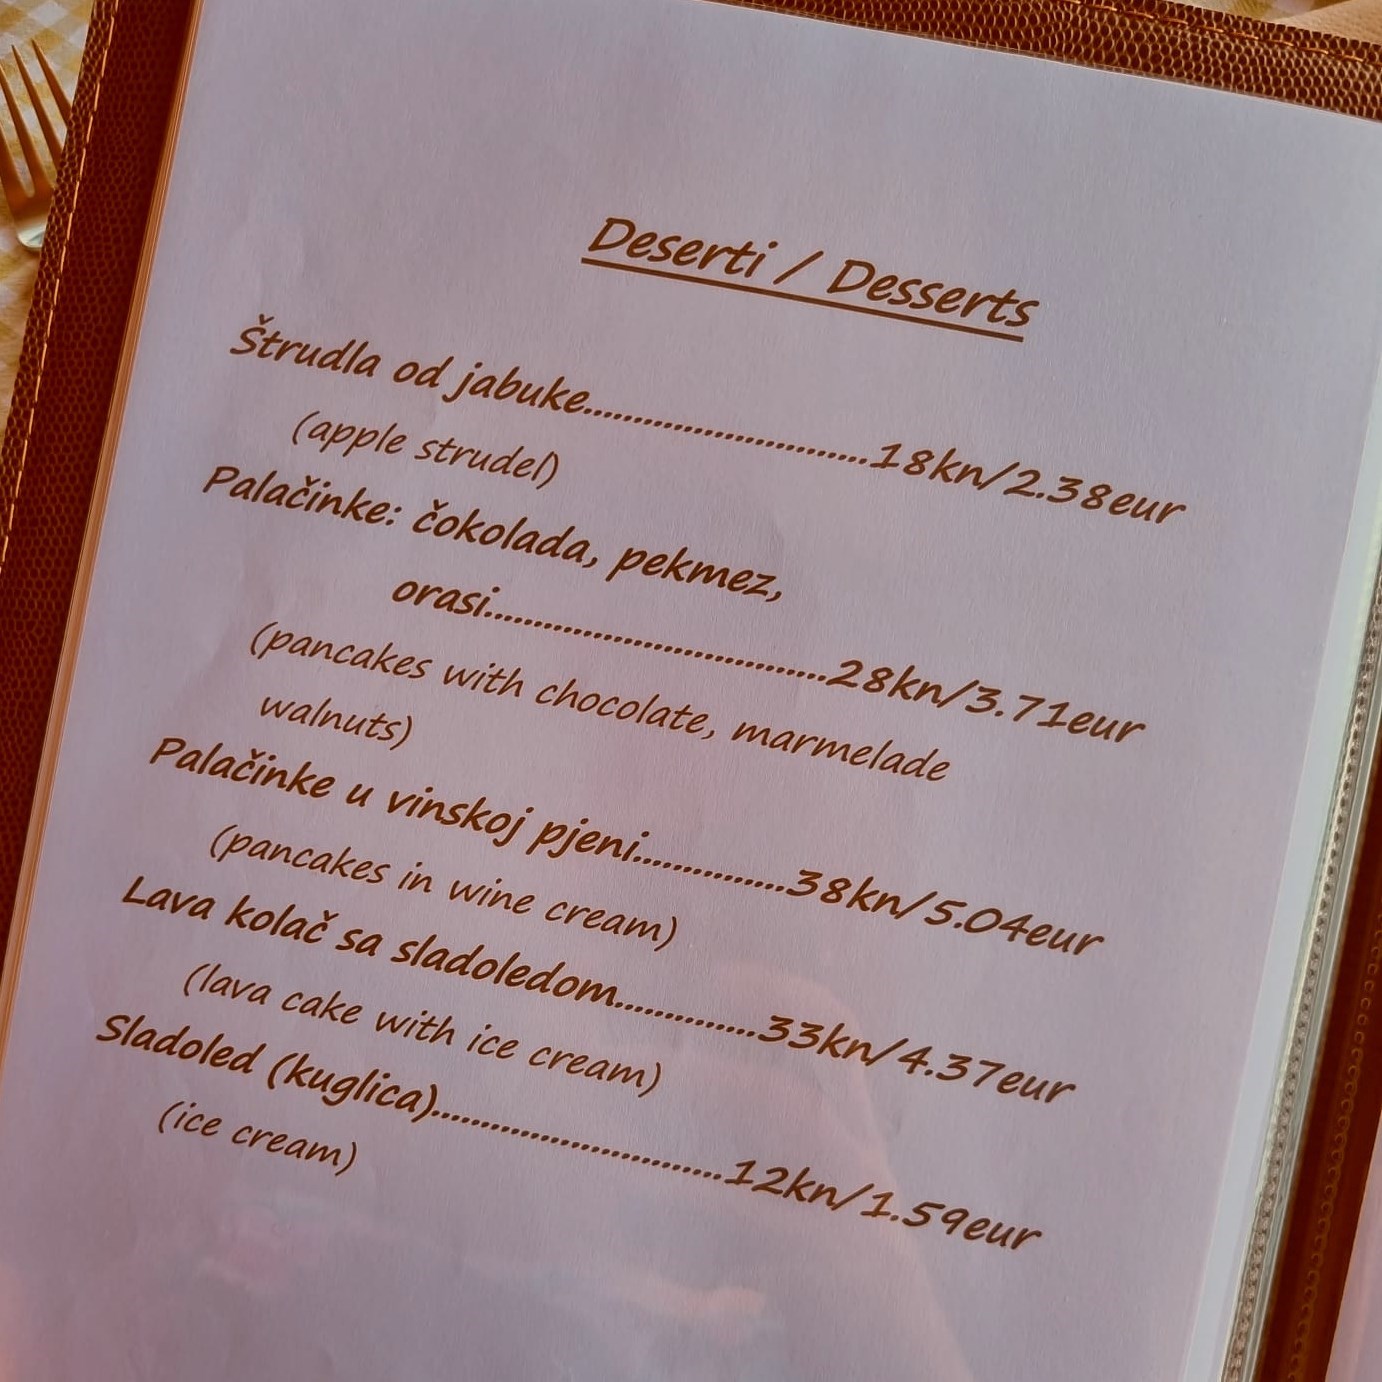 Deserti / Desserts
Štrudla od jabuke..............................18kn/2.38eur
(apple strudel)
Palačinke: čokolada, pekmez,
orasi....................................28kn/3.71eur
(pancakes with chocolate, marmelade
walnuts)
Palačinke u vinskoj pjeni................38kn/5.04eur
(pancakes in wine cream)
Lava kolač sa sladoledom..............33kn/4.37eur
(lava cake with ice cream)
Sladoled (kuglica)..............................12kn/1.59eur
(ice cream)